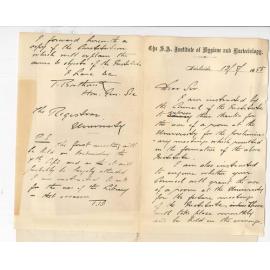 The S.A. Institute of Hygiene and Bacteriology.
Adelaide 12/7/188
Dear Sir
I am instructed by
the Council of the Institute
to convey their thanks for
the use of a room at the
University for the preliminary
meetings which resulted
in the formation of the above
Institute.
I am also instructed
to enquire whether your
Council will grant the use
of a room at the University
for the future meetings
of the Institute.
will take place monthly
and be held in the evening.
I forward herewith a
copy of the Constitution
which will explain the
names & objects of the Institute
I have &c
Hon. Gen. Sec
The Registrar
University
P.S. The first meeting will
be held on
the and as it will
be largely attended
I am instructed to ask
for the use of the Library
on that occasion